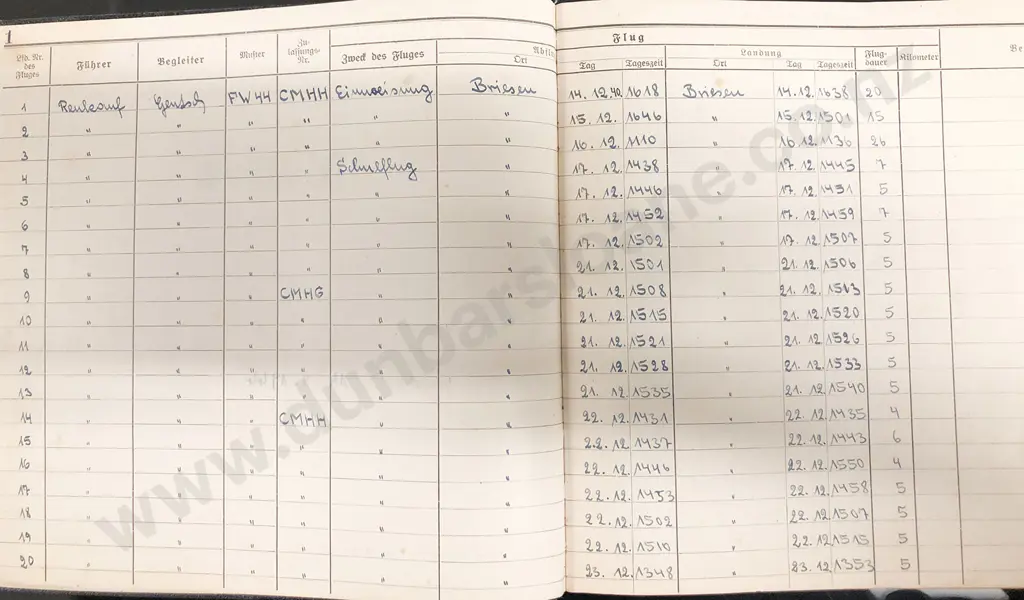 1
Flug
Lfd. Nr. des Fluges Führer Begleiter Muster Zulassungs-Nr. Zweck des Fluges Abflug Ort Tag Tageszeit Landung Ort Tag Tageszeit Flugdauer Kilometer Be
1 FW 44 CMHH Einweisung Briesen 14. 12.40 1618 Briesen 14. 12. 1638 20
2 " " " " " " 15. 12. 1646 " 15. 12. 1501 15
3 " " " " " " 16. 12. 1110 " 16. 12. 1136 26
4 " " " " Schulflug " 17. 12. 1438 " 17. 12. 1445 7
5 " " " " " " 17. 12. 1446 " 17. 12. 1451 5
6 " " " " " " 17. 12. 1452 " 17. 12. 1459 7
7 " " " " " " 17. 12. 1502 " 17. 12. 1507 5
8 " " " " " " 21. 12. 1501 " 21. 12. 1506 5
9 " " " CMHG " " 21. 12. 1508 " 21. 12. 1513 5
10 " " " " " " 21. 12. 1515 " 21. 12. 1520 5
11 " " " " " " 21. 12. 1521 " 21. 12. 1526 5
12 " " " " " " 21. 12. 1528 " 21. 12. 1533 5
13 " " " " " " 21. 12. 1535 " 21. 12. 1540 5
14 " " " CMHH " " 22. 12. 1431 " 22. 12. 1435 4
15 " " " " " " 22. 12. 1437 " 22. 12. 1443 6
16 " " " " " " 22. 12. 1446 " 22. 12. 1550 4
17 " " " " " " 22. 12. 1453 " 22. 12. 1458 5
18 " " " " " " 22. 12. 1502 " 22. 12. 1507 5
19 " " " " " " 22. 12. 1510 " 22. 12. 1515 5
20 " " " " " " 23. 12. 1348 " 23. 12. 1353 5
www.dunbarsloane.co.nz